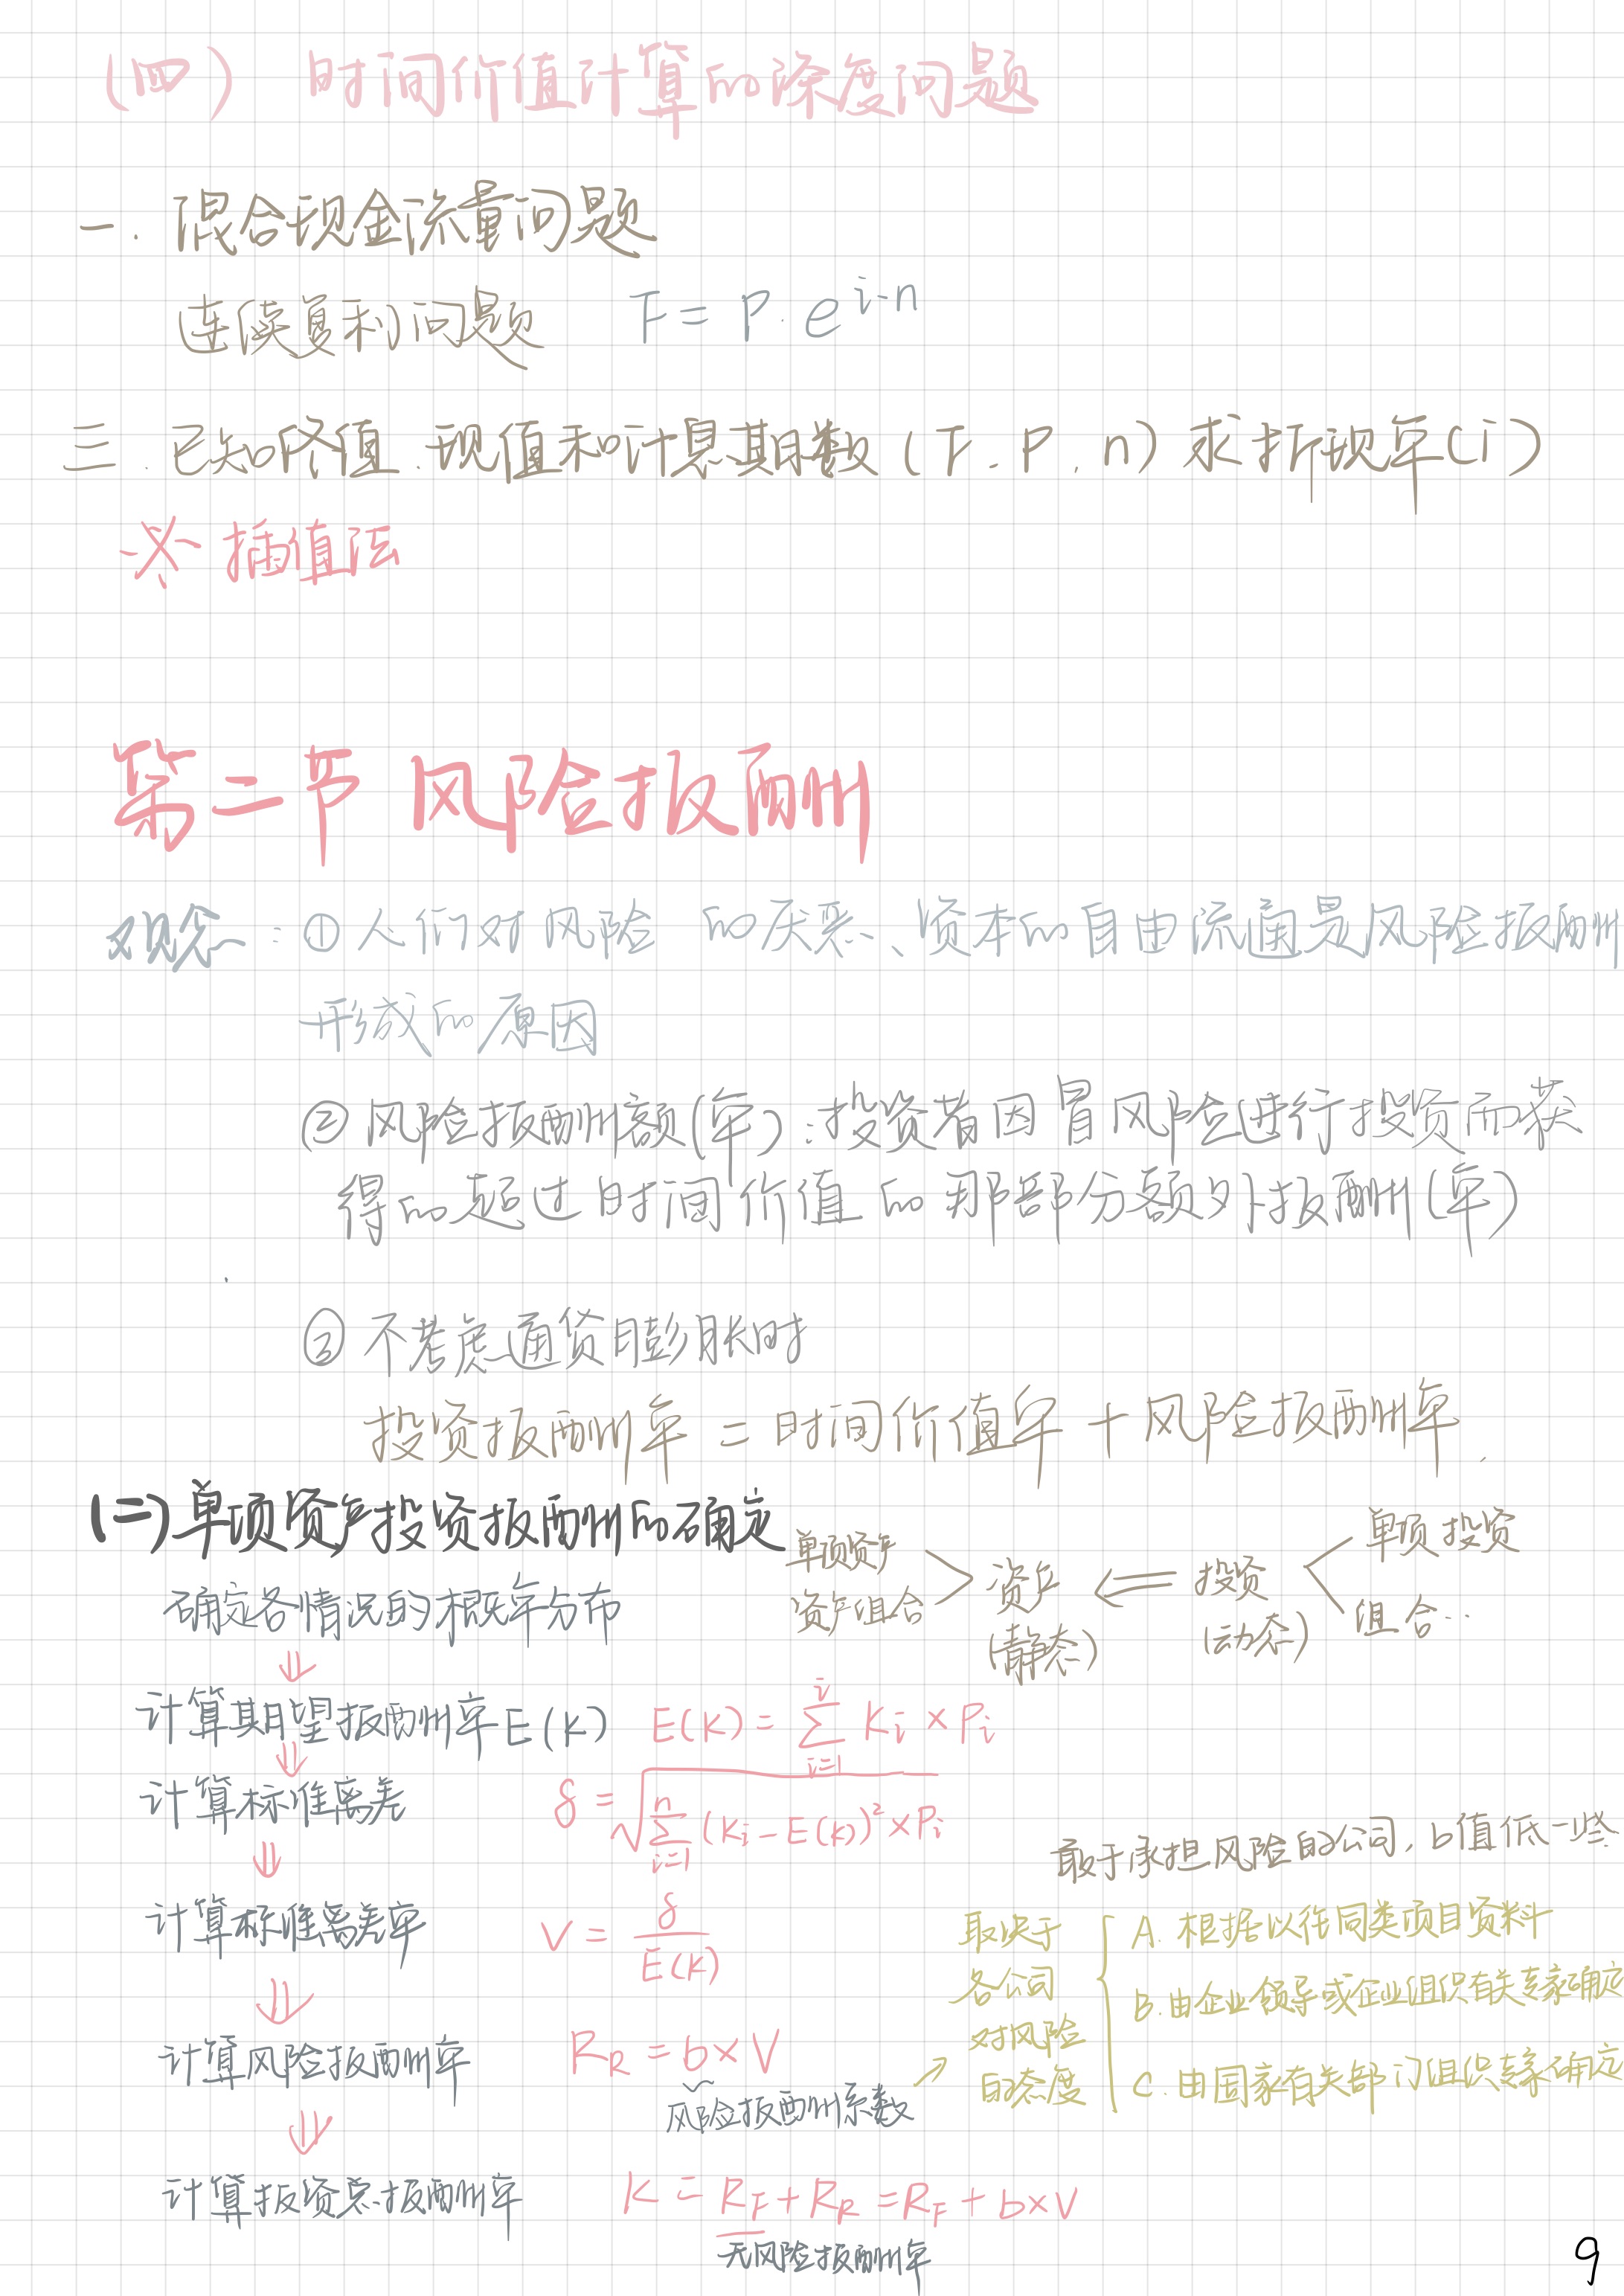 (四) 时间价值计算的深度问题
一. 混合现金流量问题
连续复利问题 F = P · e^{i·n}
三. 已知终值.现值和计息期数(F.P.n)求折现率(i)
※ 插值法
第二节 风险报酬
观念:① 人们对风险 的厌恶、资本的自由流通是风险报酬
形成的原因
② 风险报酬额(率):投资者因冒风险进行投资而获
得的超过时间价值的那部分额外报酬(率)
③ 不考虑通货膨胀时
投资报酬率 = 时间价值率 + 风险报酬率
(二)单项资产投资报酬的确定
单项资产
资产组合 > 资产 ⇐ 投资 < 单项投资
组合…
(静态) (动态)
确定各情况的概率分布
⇓
计算期望报酬率E(K) E(K) = \sum_{i=1}^{i} Ki × Pi
⇓
计算标准离差 δ = \sqrt{\sum_{i=1}^{n} (Ki - E(K))² × Pi}
⇓
敢于承担风险的公司, b值低一些
计算标准离差率 V = δ / E(K)
⇓
计算风险报酬率 R_R = b × V
风险报酬系数 ↗
取决于
各公司
对风险
的态度
A. 根据以往同类项目资料
B. 由企业领导或企业组织有关专家确定
C. 由国家有关部门组织专家确定
⇓
计算投资总报酬率 K = R_F + R_R = R_F + b×V
无风险报酬率
9